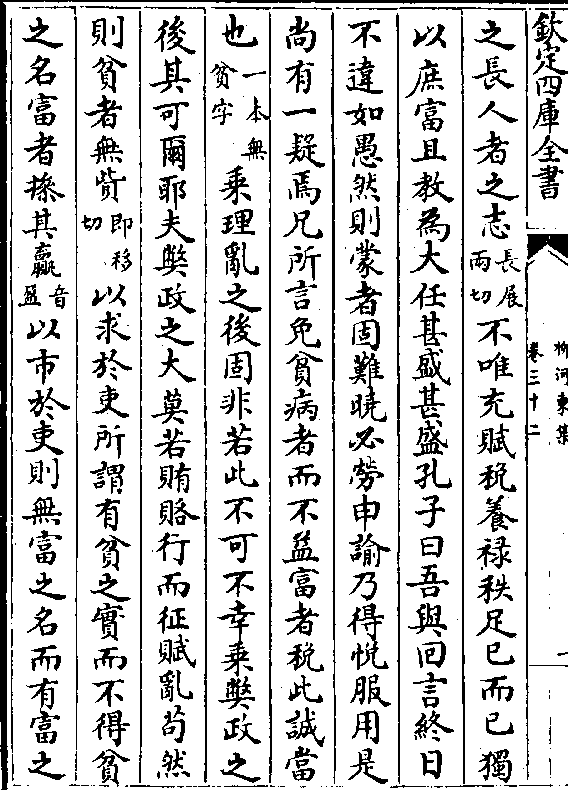 欽定四庫全書
柳河東集
卷三十二
之長人者之志長展兩切不唯充賦稅養祿秩足已而已獨
以庶富且教為大任甚盛甚盛孔子曰吾與回言終日
不違如愚然則蒙者固難曉必勞申諭乃得悅服用是
尚有一疑焉兄所言免貧病者而不益富者稅此誠當
也一本無貧字乘理亂之後固非若此不可不幸乘弊政之
後其可爾耶夫弊政之大莫若賄賂行而征賦亂苟然
則貧者無貲即移切以求於吏所謂有貧之實而不得貧
之名富者操其贏音盈以市於吏則無富之名而有富之